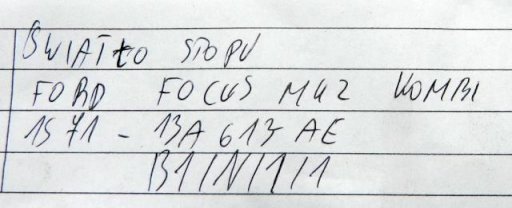 ŚWIATŁO STOPU
FORD FOCUS MK2 KOMBI
1571 - 13A613 AE
B1/N/1/1